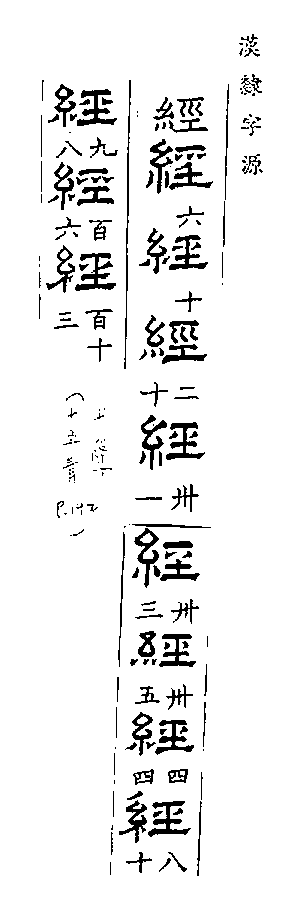 漢隸字源
經經六經十經二十經卅一經卅三經卅五經四四經八十
經九八經百六經百十三
十五青 P.142)